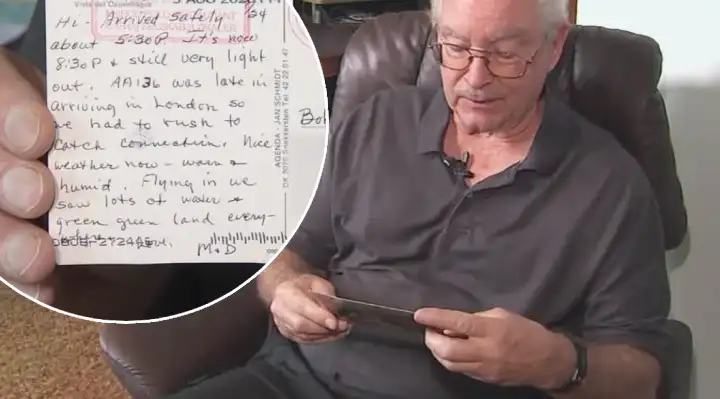 Vista del Copenhague
5 AUG 2024
Hi- Arrived safely 7/24
about 5:30P. It's now
8:30P & still very light
out. AA136 was late in
arriving in London so
we had to rush to
catch connection. Nice
weather now - warm &
humid. Flying in we
saw lots of water &
green green land every-
where. Love,
M+D
AGENDA - JAN SCHMIDT
DK 3070 Snekkersten Tel. 42 22 01 47
Bob